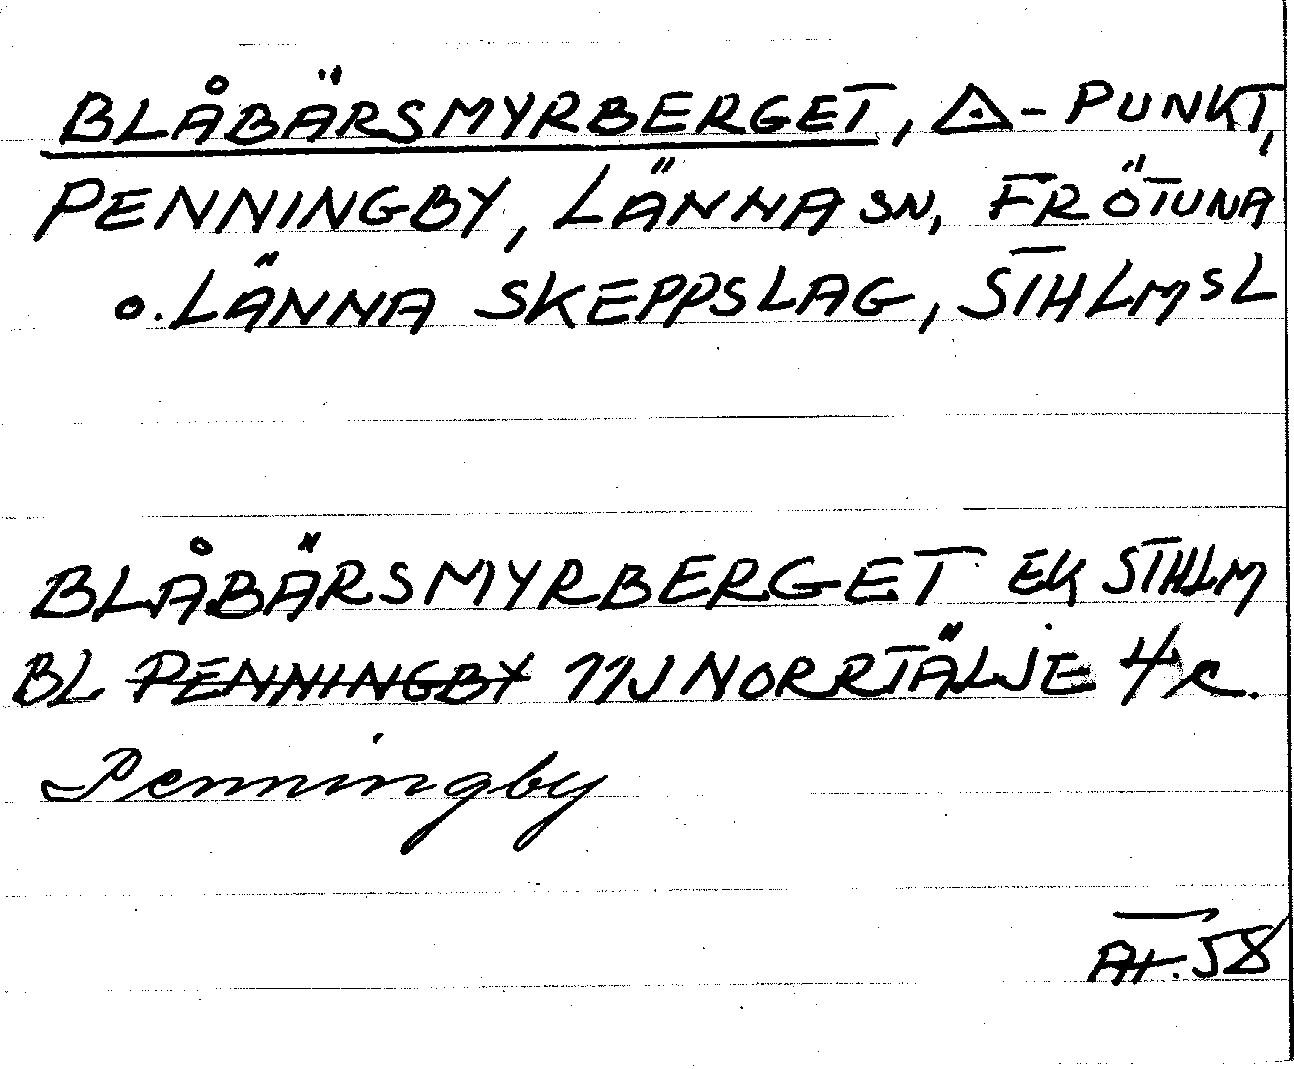 BLÅBÄRSMYRBERGET, △-PUNKT,
PENNINGBY, LÄNNA SN, FRÖTUNA
O. LÄNNA SKEPPSLAG, STHLMSL
BLÅBÄRSMYRBERGET EK STHLM
BL PENNINGBY 11J NORRTÄLJE 4c.
Penningby
58